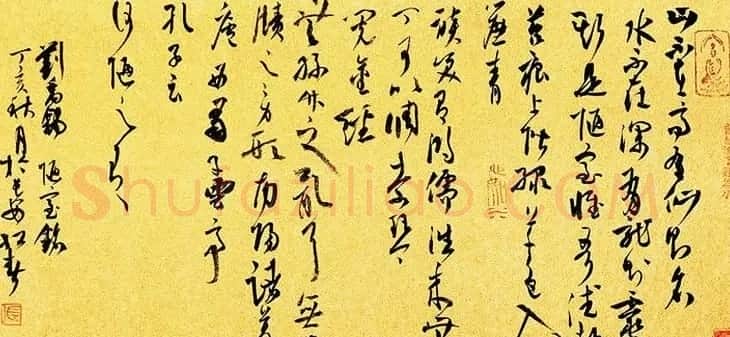 山不在高有仙則名
水不在深有龍則靈
斯是陋室惟吾德馨
苔痕上階綠草色入
簾青
談笑有鴻儒往來無
丁可以調素琴
閱金經
無絲竹之亂耳無
牘之勞形南陽諸葛
廬西蜀子雲亭
孔子云
何陋之有
劉禹錫 陋室銘
丁亥秋月於長安
Shufaziliao.com